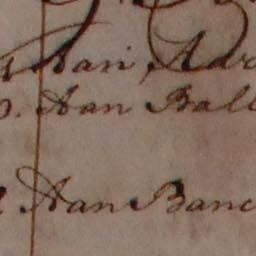 Aan Adr
D. Aan Ball
Aan Banc